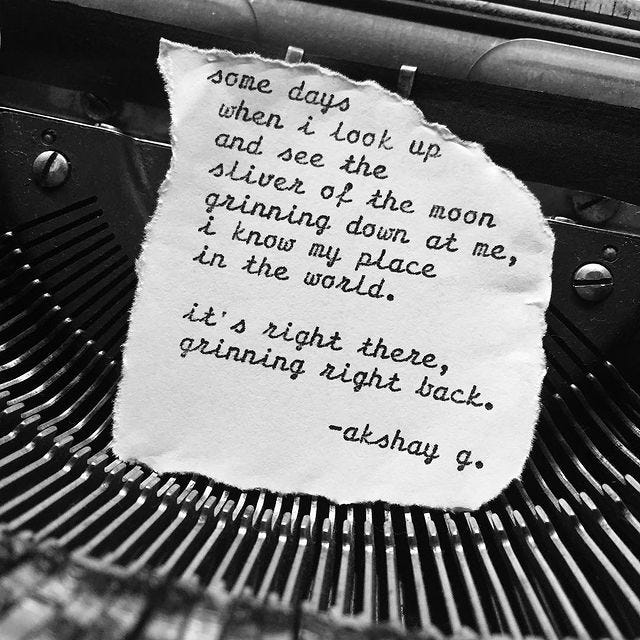 some days
when i look up
and see the
sliver of the moon
grinning down at me,
i know my place
in the world.
it's right there,
grinning right back.
-akshay g.